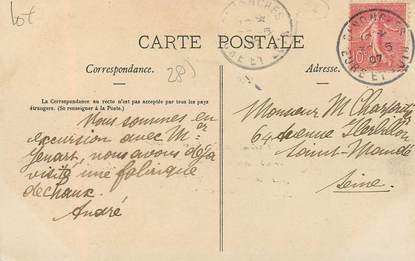 Lot
28)
CARTE POSTALE
Correspondance.
Adresse.
La Correspondance au recto n'est pas acceptée par tous les pays
étrangers. (Se renseigner à la Poste.)
Nous sommes en
excursion avec Mer
nous avons déjà
visité une fabrique
de chaux.
André
Monsieur M
64 avenue
Saint-Mandé
Seine.
EURE ET LOIR
07